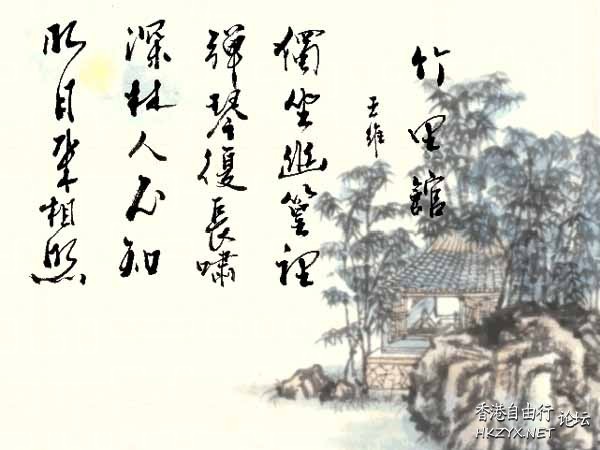 竹里館
王維
獨坐幽篁裡
彈琴復長嘯
深林人不知
明月來相照
香港自由行 论坛
HKZYX.NET